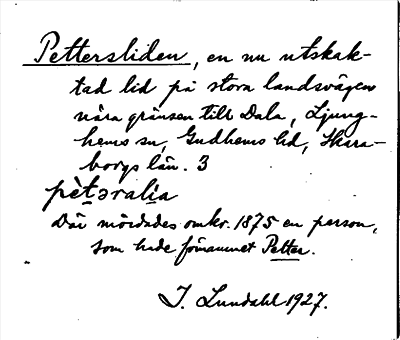 Pettersliden, en nu utskak-
tad lid på stora landsvägen
nära gränsen till Dala, Ljung-
hems sn, Gudhems hd, Skara-
borgs län. 3
pèt̲əralia
Där mördades omkr. 1875 en person,
som hade förnamnet Petter.
J. Lundahl 1927.